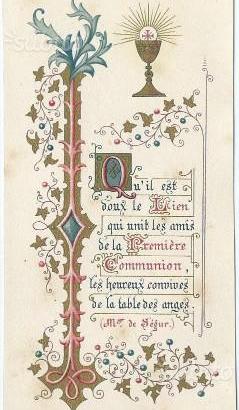 Qu'il est
doux le Lien
qui unit les amis
de la Première
Communion,
les heureux convives
de la table des anges.
(Mgr de Ségur.)